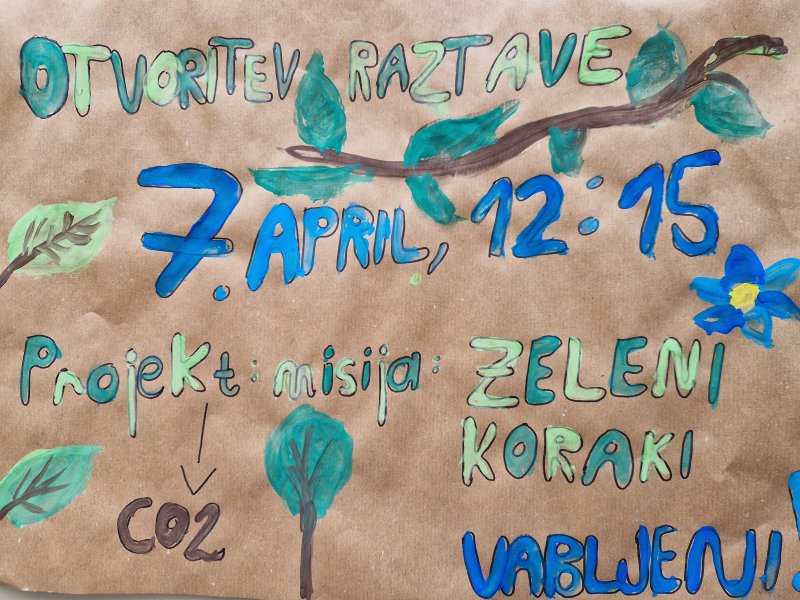 OTVORITEV RAZTAVE
7. APRIL, 12:15
Projekt: misija: ZELENI
KORAKI
CO2
VABLJENI!